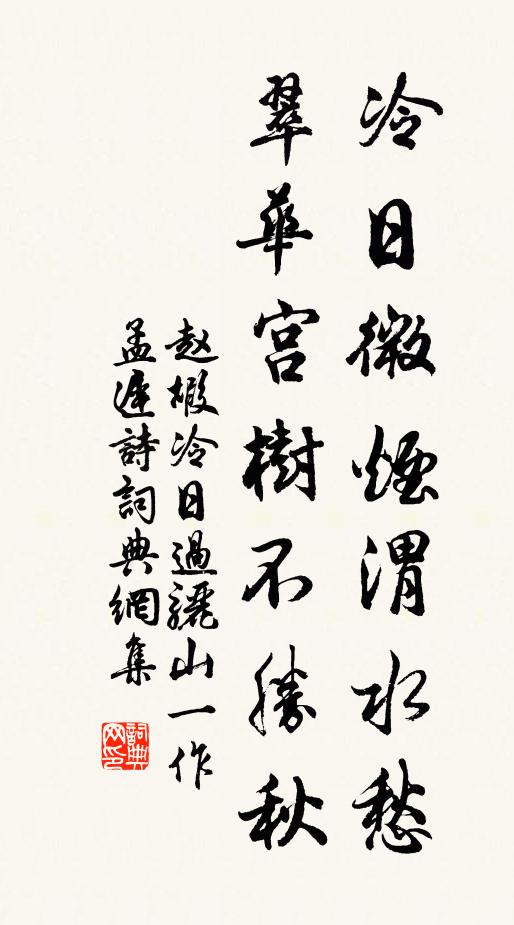 冷日微煙渭水愁
翠華宮樹不勝秋
赵嘏冷日過驪山一作
孟遲詩詞典網集
詞典
网印